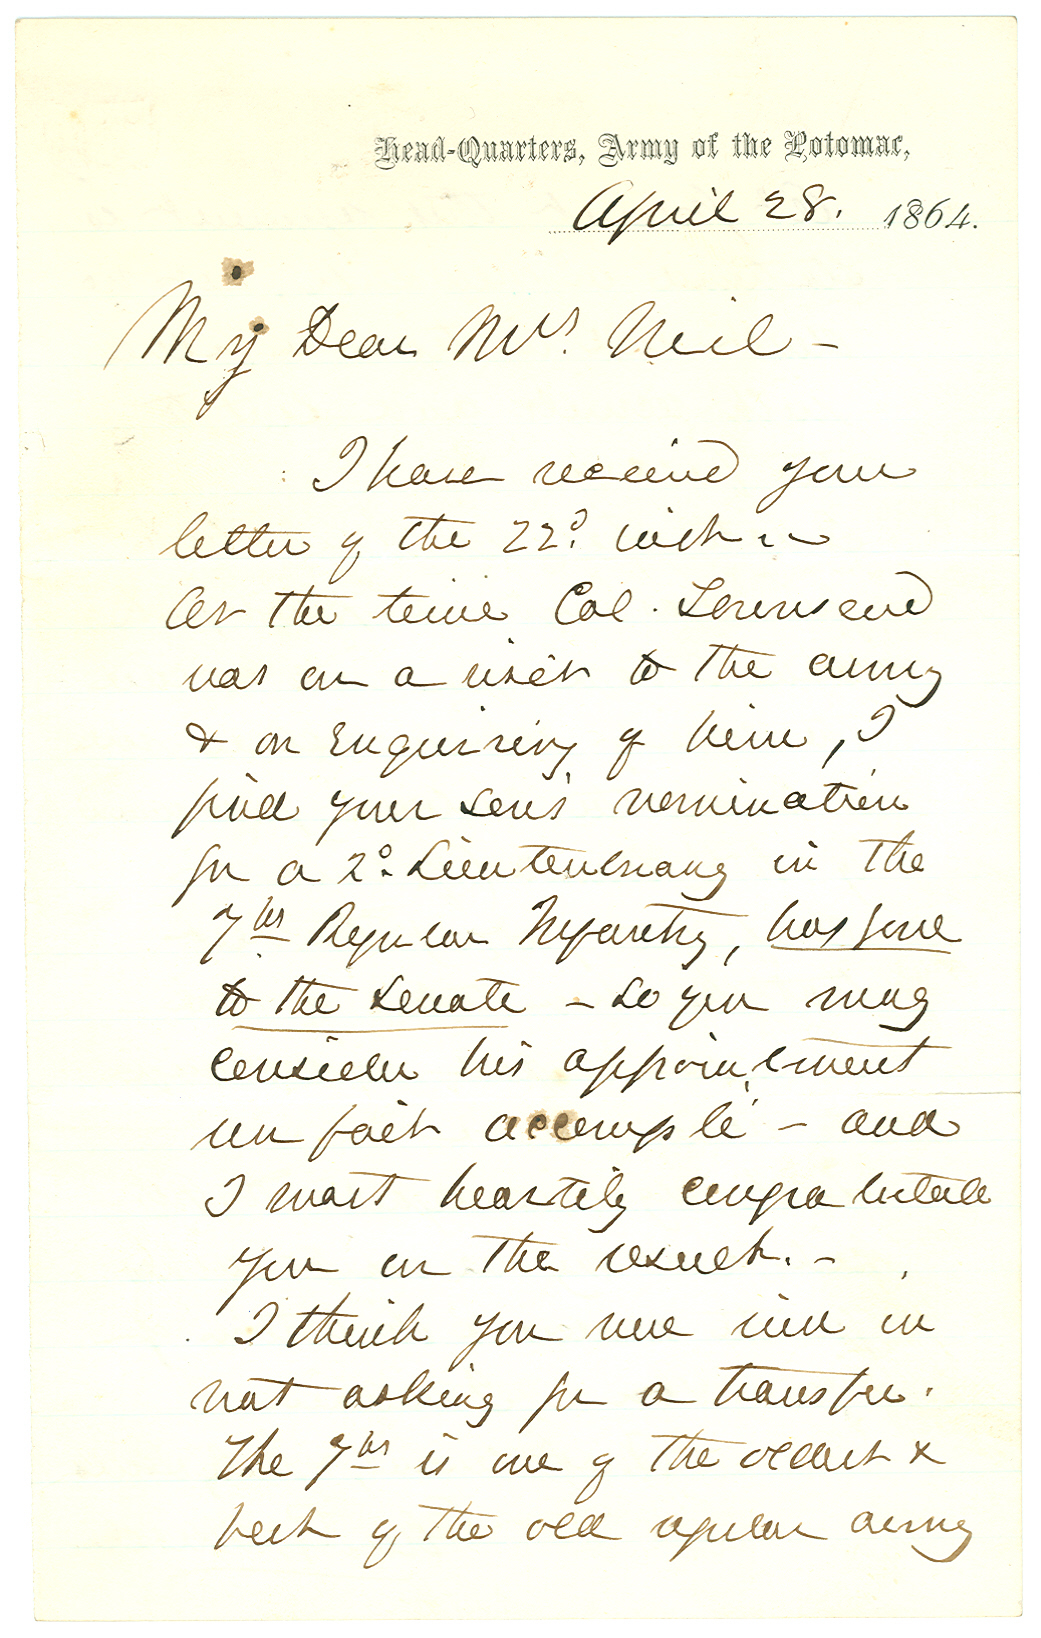 Head-Quarters, Army of the Potomac,
April 28. 1864.
My Dear Mrs. Neil –
I have received your
letter of the 22d. inst. –
At the time Col. Townsend
was on a visit to the army
& on enquiring of him, I
find your son's nomination
for a 2d. Lieutenancy in the
7th Regular Infantry, has gone
to the Senate – so you may
consider his appointment
un fait accomplé – and
I most heartily congratulate
you on the result. –
I think you were in
not asking for a transfer.
The 7th is one of the oldest &
best of the old regular army